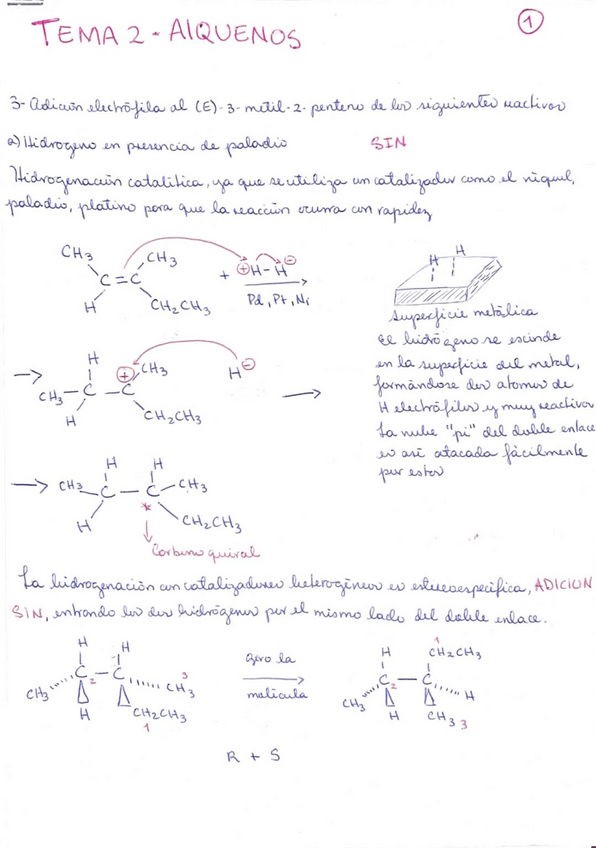 TEMA 2 - AlQUENOS
1
3- Adición electrófila al (E)-3-metil-2-penteno de los siguientes reactivos
a) Hidrogeno en presencia de paladio SIN
Hidrogenación catalítica, ya que se utiliza un catalizador como el niquel,
paladio, platino para que la reacción ocurra con rapidez
CH3 CH3
C=C + ⊕H-H⊖
H CH2CH3 Pd, Pt, Ni
H H
Superficie metálica
El hidrógeno se escinde
en la superficie del metal,
formándose dos atomos de
H electrófilos y muy reactivos
La nube "pi" del doble enlace
es asi atacada fácilmente
por estos
H ⊕ CH3 H⊖
CH3-C-C
H CH2CH3
H H
CH3-C-C-CH3
* H CH2CH3
Carbono quiral
La hidrogenación con catalizadores heterogéneos es estereoespecífica, ADICION
SIN, entrando los dos hidrógenos por el mismo lado del doble enlace.
H H
CH3 C2-C CH3 3
H CH2CH3
1
giro la
molécula
1
H CH2CH3
CH3 C2-C H
H CH3 3
R + S